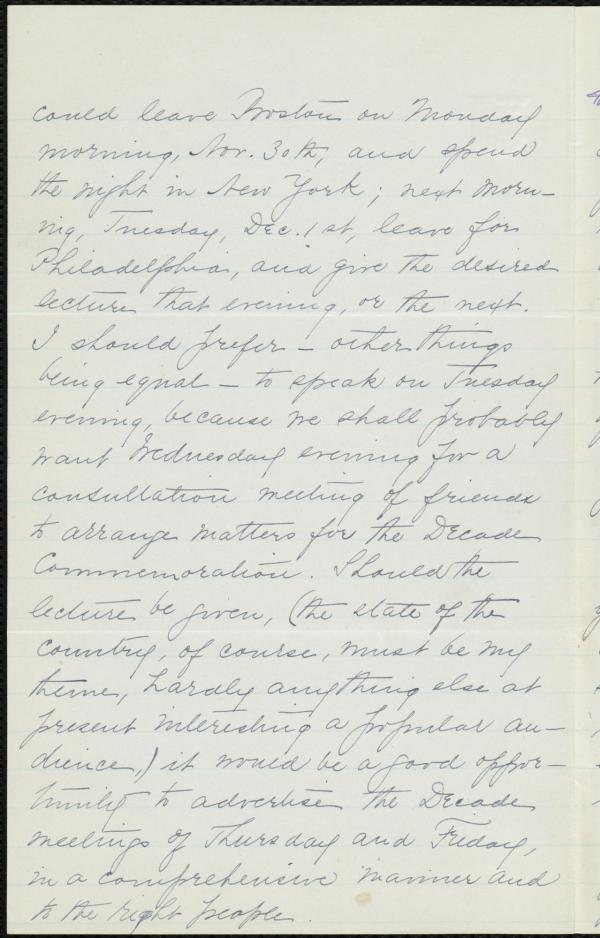 could leave Boston on Monday
morning, Nov. 30th, and spend
the night in New York; next morn-
ing, Tuesday, Dec. 1st, leave for
Philadelphia, and give the desired
lecture that evening, or the next.
I should prefer – other things
being equal – to speak on Tuesday
evening, because we shall probably
want Wednesday evening for a
consultation meeting of friends
to arrange matters for the Decade
Commemoration. Should the
lecture be given, (the state of the
country, of course, must be my
theme, hardly anything else at
present interesting a popular au-
dience,) it would be a good oppor-
tunity to advertise the Decade
meetings of Thursday and Friday,
in a comprehensive manner and
to the right people.